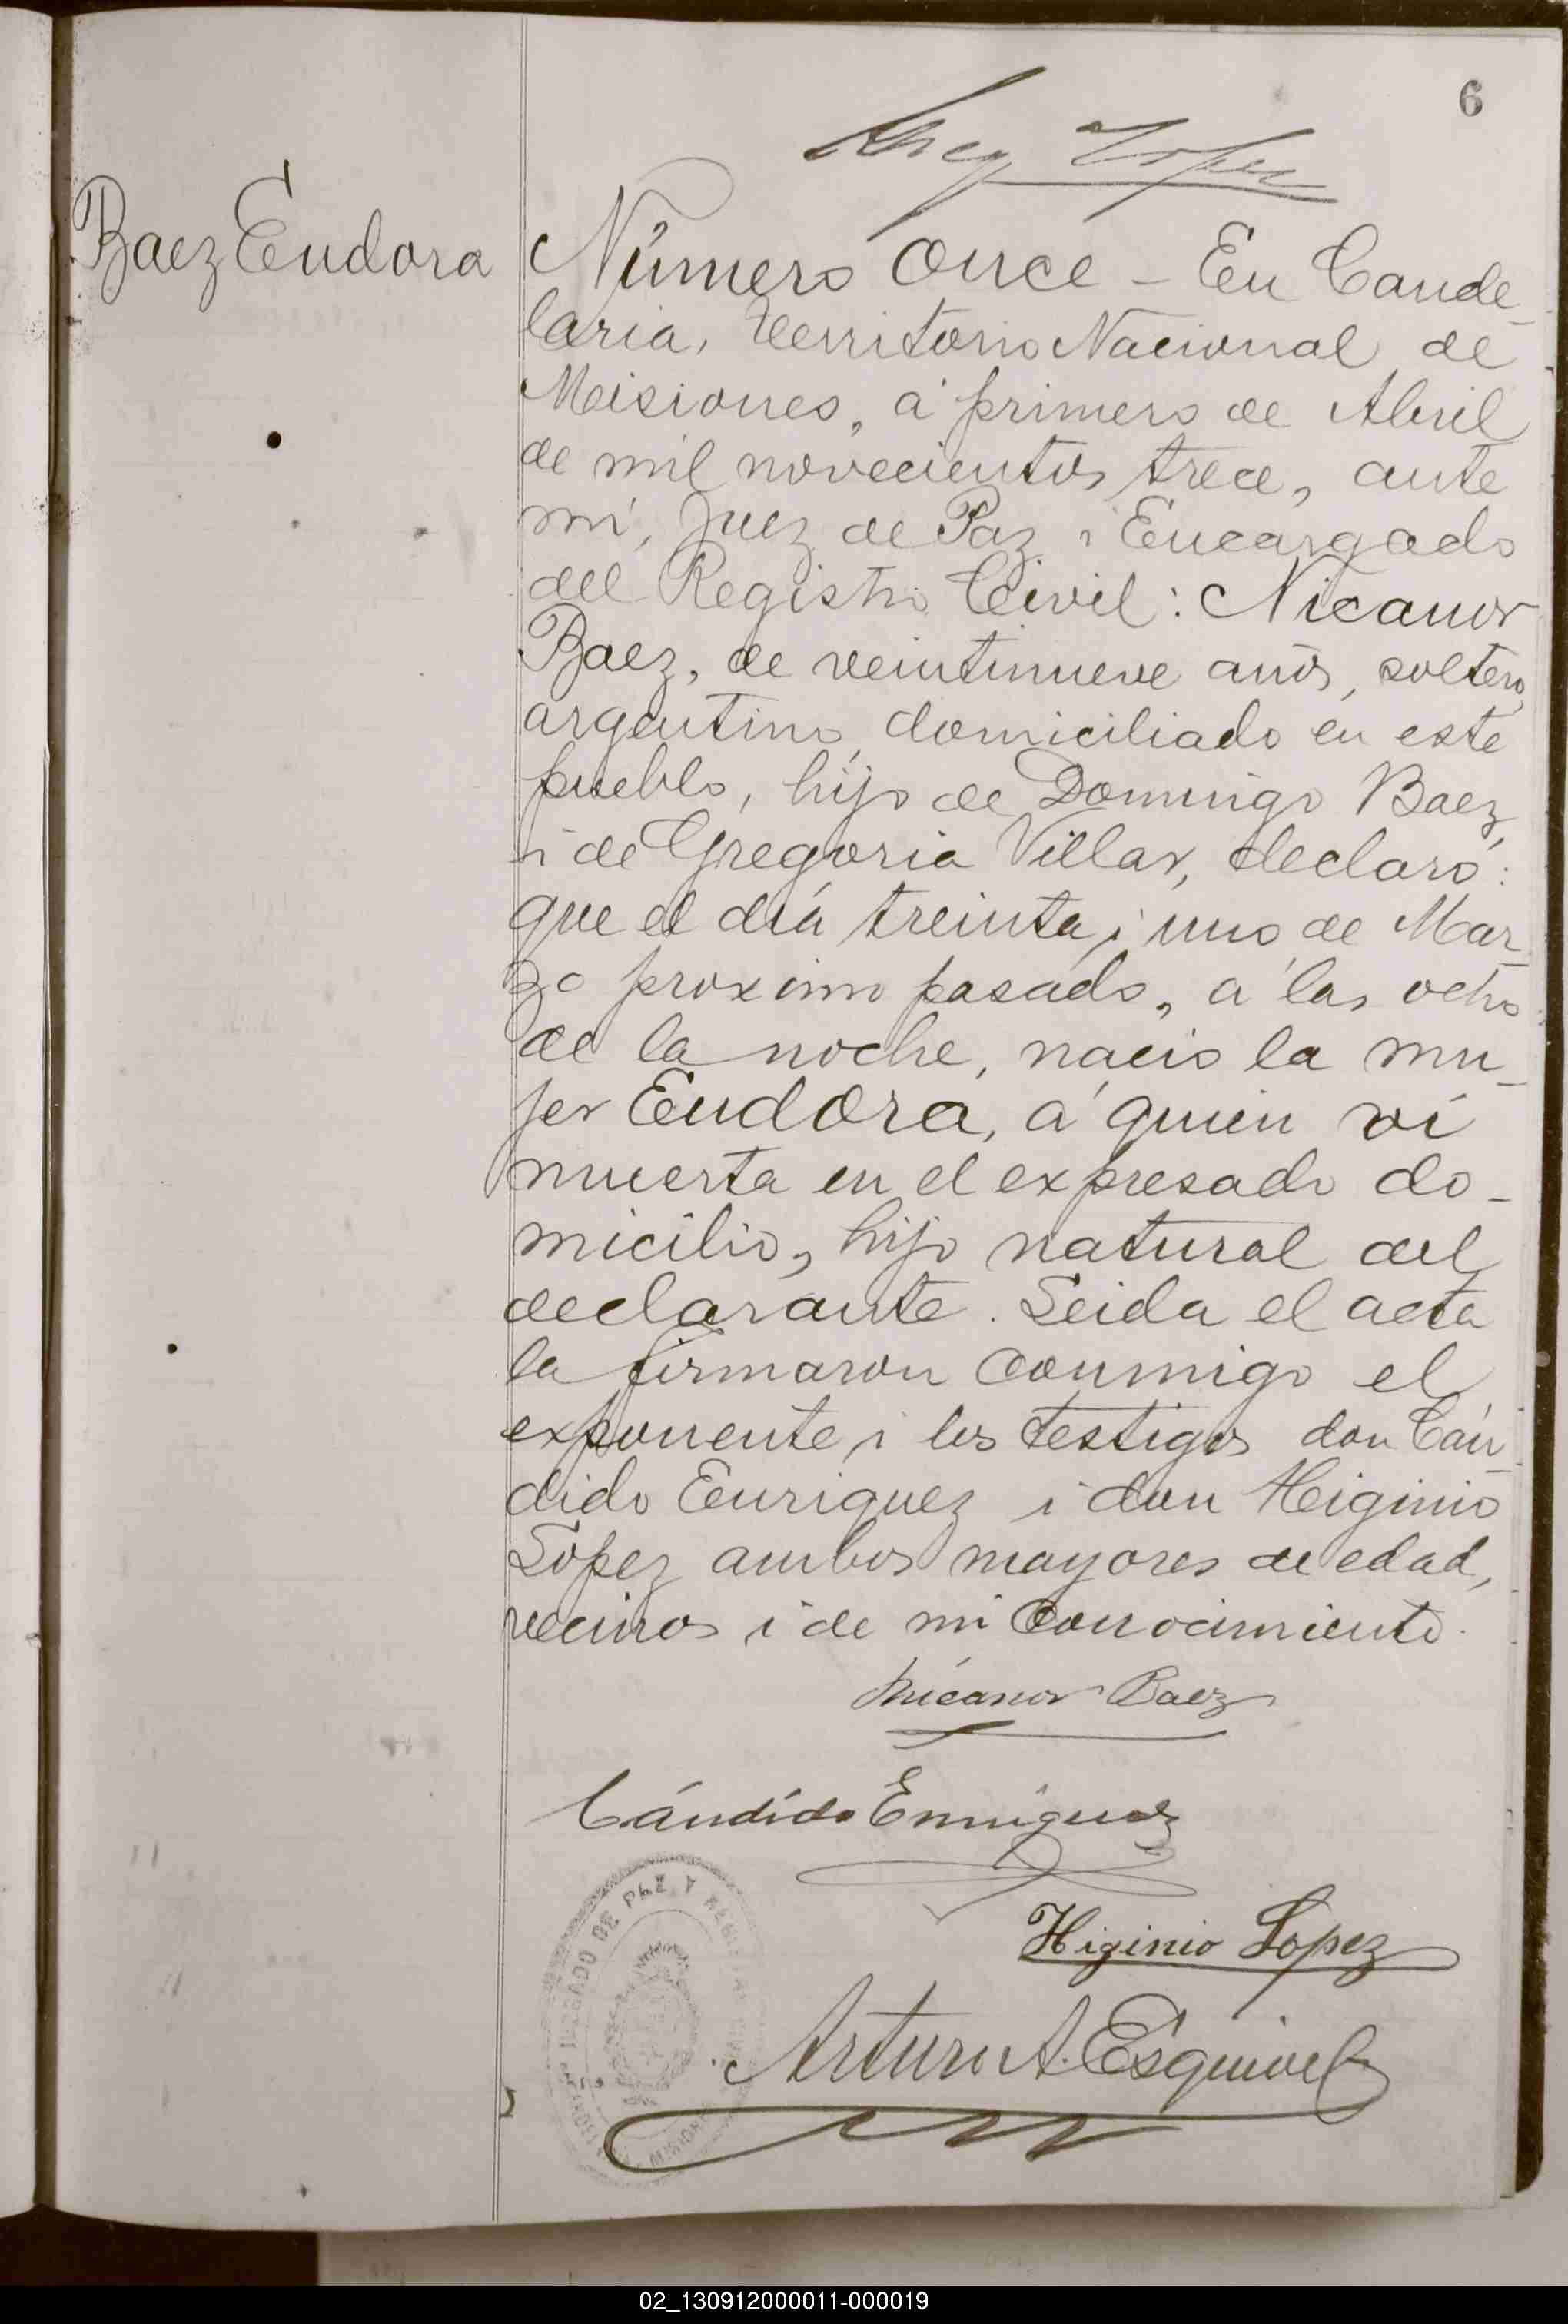 6
Lopez
Baez Eudora
Número Once – En Cande-
laria, Territorio Nacional de
Misiones, á primero de Abril
de mil novecientos trece, ante
mí, Juez de Paz i Encargado
del Registro Civil: Nicanor
Baez, de veintinueve años, soltero,
argentino, domiciliado en este
pueblo, hijo de Domingo Baez,
i de Gregoria Villar, declaró:
que el día treinta i uno de Mar-
zo proximo pasado, á las ocho
de la noche, nació la mu-
jer Eudora, á quien ví
muerta en el expresado do-
micilio, hijo natural del
declarante. Leida el acta
la firmaron conmigo el
exponente i los testigos don Cán-
dido Enriquez i don Higinio
Lopez ambos mayores de edad,
vecinos i de mi conocimiento.
Nicanor Baez
Cándido Enriquez
Higinio Lopez
Arturo A. Esquivel
JUZGADO DE PAZ Y
MISIONES
02_130912000011-000019